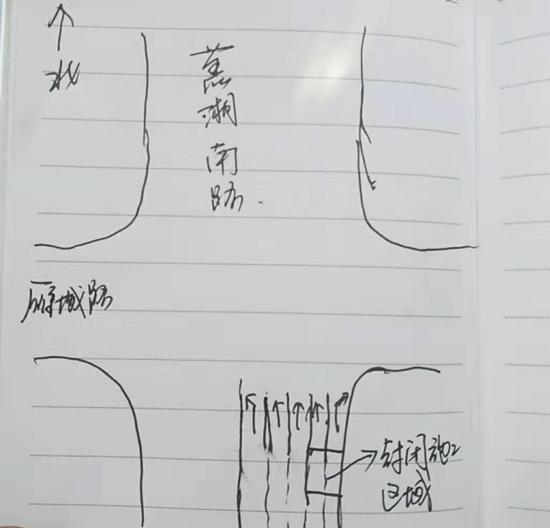 北
湖南路
城路
封闭施工
区域